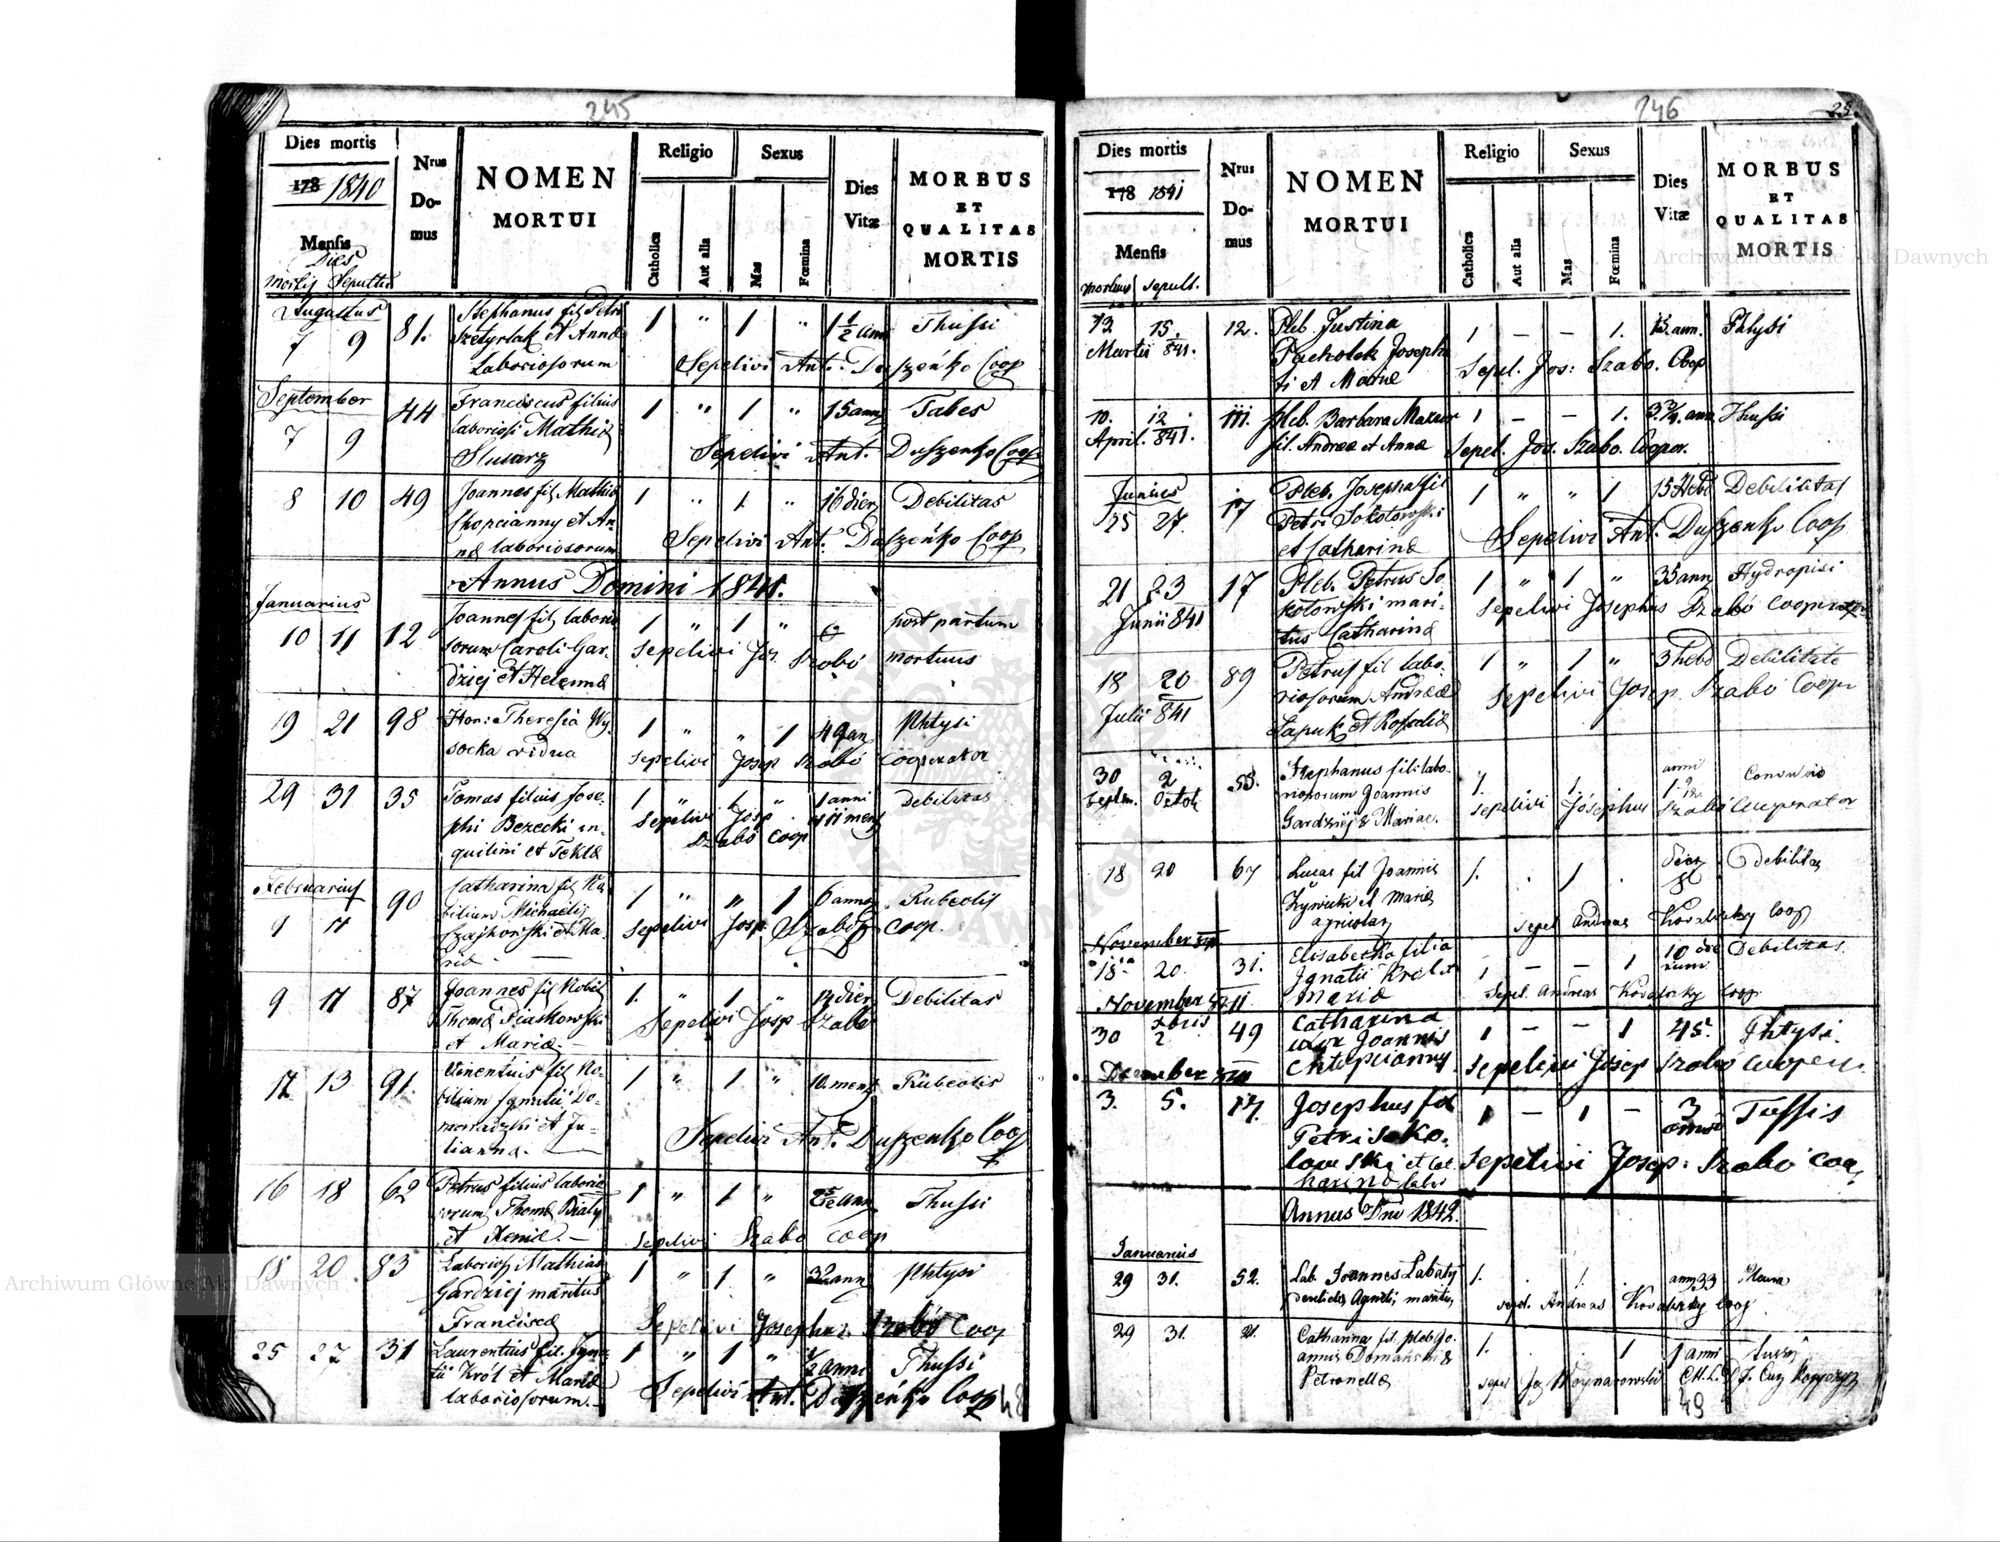 245
Dies mortis
178 1840
Mensis
Dies
mortis Sepultu
Nrus
Do-
mus
NOMEN
MORTUI
Religio
Catholica
Aut alia
Sexus
Mas
Fœmina
Dies
Vitæ
MORBUS
ET
QUALITAS
MORTIS
Augustus
7 9 81. Stephanus fil Petri 1 " 1 " 1 1/2 ann Thussi
et Annæ
Laboriosorum Sepelivi Ant. Duszeńko Coop
September
7 9 44 Franciscus filius 1 " 1 " 15 ann Tabes
laboriosi Mathiæ
Slusarz Sepelivi Ant. Duszenko Coop
8 10 49 Joannes fil Mathiæ 1 " 1 " 16 dier Debilitas
Chopcianny et An-
næ laboriosorum Sepelivi Ant. Duszeńko Coop
Annus Domini 1841.
Januarius
10 11 12 Joannes fil laborio 1 " 1 " post partum
sorum Caroli Gar- Sepelivi Jos. Szabó mortuus
dziej et Helenæ
19 21 98 Hon: Theresia Wy- 1 " " 1 49 an Phtysi
socka vidua sepelivi Josep Szabó Cooperator
29 31 35 Tomas filius Jose- 1 " 1 " 1 anni Debilitas
phi Bezecki in- Sepelivi Josp et 11 mens
quilini et Teklæ Szabó Coop
Februarius
9 11 90 Catharina fil No 1 " " 1 6 anno Rubeolis
bilium Michaelis sepelivi Josp. Szabó Coop.
Czajkowski et Ma-
riæ
9 11 87 Joannes fil Nobil 1. " 1 " 12 dier Debilitas
Thomæ Piaskowski Sepelivi Josp Szabó
et Mariæ.
12 13 91. Vincentius fil No- 1 " 1 " 10 mens Rubeolis
bilium
Domaradzki et Ju-
lianna. Sepelivi Ant. Duszenko Coop
16 18 62 Petrus filius laborio 1 " 1 " ann Thussi
sorum Thomæ Biały
et Xeniæ. sepelivi Szabó Coop
18 20 83 Laborios Mathias 1 " 1 " 32 ann Phtysi
Gardziej maritus
Franciscæ Sepelivi Josephus Szabó Coop
25 27 31 Laurentius fil. Igna 1 " 1 " 1/2 anni Thussi
tii Król et Mariæ
laboriosorum. Sepelivi Ant. Duszeńko Coop
48
246
25.
Dies mortis
178 1841
Mensis
mortuus sepult.
Nrus
Do-
mus
NOMEN
MORTUI
Religio
Catholica
Aut alia
Sexus
Mas
Fœmina
Dies
Vitæ
MORBUS
ET
QUALITAS
MORTIS
13 15. 12. Pleb. Justina 1 – – 1. 15 ann. Phtysi
Martii 841. Pacholek Josephi
et Mariæ Sepel. Jos: Szabo. Coop
10. 12 111. pleb. Barbara Mazur 1 – – 1. 3 3/4 ann Thussi
April. 841. fil. Andreæ et Annæ Sepel. Jos. Szabo. Cooper.
Junius
25 27. 17 Pleb. Josepha fil 1 " " 1 15 Hebd Debilitas
Petri Sokołowski
et Catharinæ Sepelivi Ant. Duszenko Coop
21 23 17 Pleb. Petrus So- 1 " 1 " 35 ann Hydropisi
Junii 841 kołowski mari- sepelivi Josephus Szabó Cooperator
tus Catharinæ
18 20 89 Petrus fil labo- 1 " 1 " 3 hebd Debilitate
Julii 841 riosorum Andreæ sepelivi Josep. Szabó Coop
Łapuk et Rosaliæ
30 2 55. Stephanus fil: labo- 1. 1. anni
Septem. Octob riosorum Joannis sepelivi Josephus Szabó Cooperator
Gardziej & Mariae.
18 20 67 Lucas fil Joannis 1. . 1 . dier Debilitas
Żywicki et Mariæ
agricolar sepel Andreas Kovalszky Coop
November 841
18 20. 31. Elisabetha filia 1 – – 1 10 die Debilitas.
Ignatii Król et rum
Mariæ Sepel. Andreas Kovalszky Coop
November 841
30 xbris 2 49 Catharina 1 – – 1 45. Phtysi.
uxor Joannis
Chłopcianny sepelivi Josep Szabó Cooper.
December 841
3. 5. 17. Josephus fil 1 – 1 – 3 Tussis
Petri Soko-
łowski et Cat sepelivi Josep: Szabó Coo
harinæ labo
Annus Dni 1842.
Januarius
29 31. 52. Lab Joannes Łabaty 1. . 1. . ann 33
Agnetis maritus sepel. Andreas Kovalszky Coop
29 31. 21. Catharina fil. pleb Jo- 1. . . 1 1 anni Tussis
annis Domański &
Petronellæ sepel Jos Woynarowski
49
Archiwum Główne Akt Dawnych
Archiwum Główne Akt Dawnych
ARCHIWUM GŁÓWNE AKT DAWNYCH